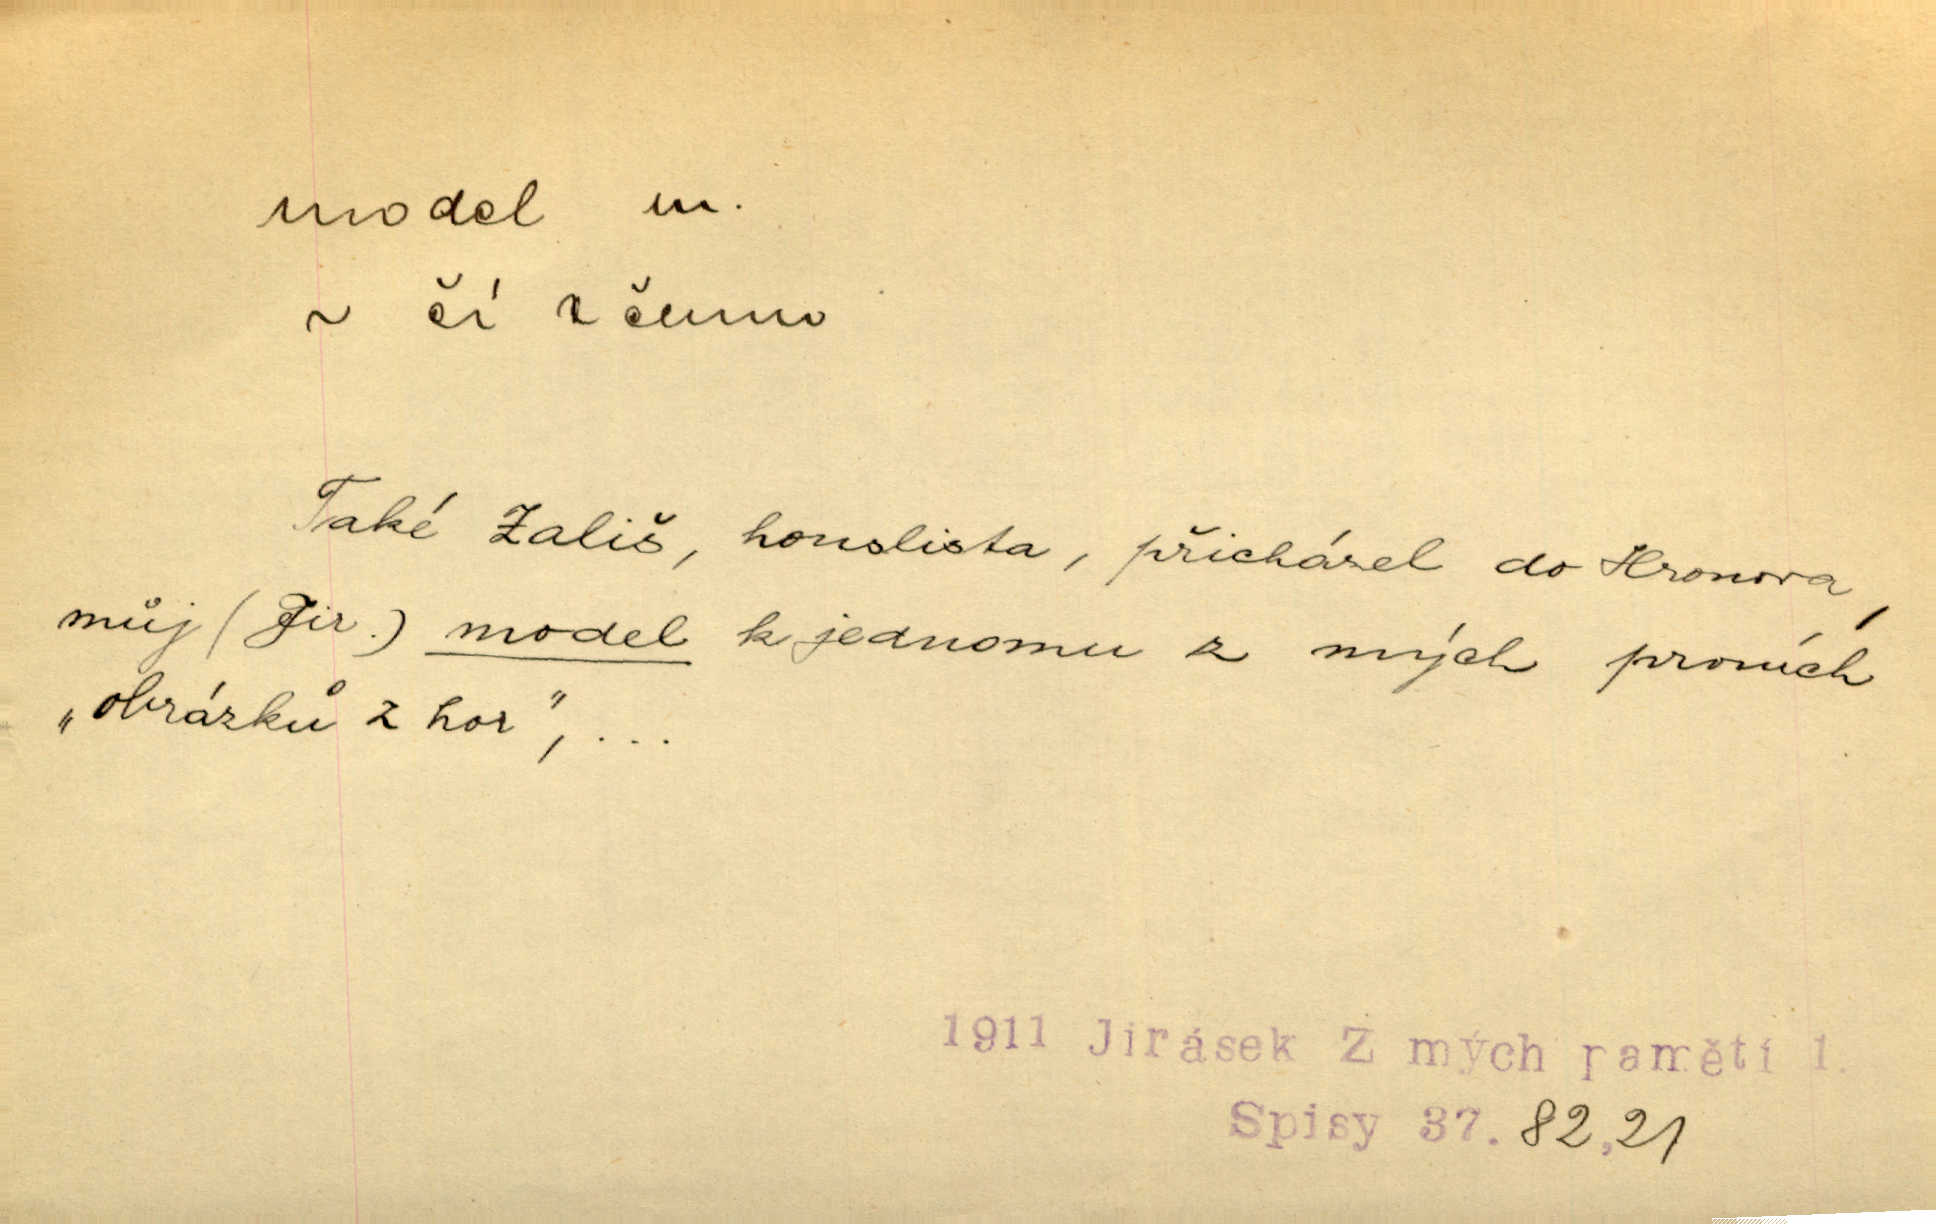 model m.
~ čí k čemu
Také Zališ, houslista, přicházel do Hronova,
můj (Jir.) model k jednomu z mých prvních
„obrázků z hor", ...
1911 Jirásek Z mých pamětí 1.
Spisy 37. 82,21